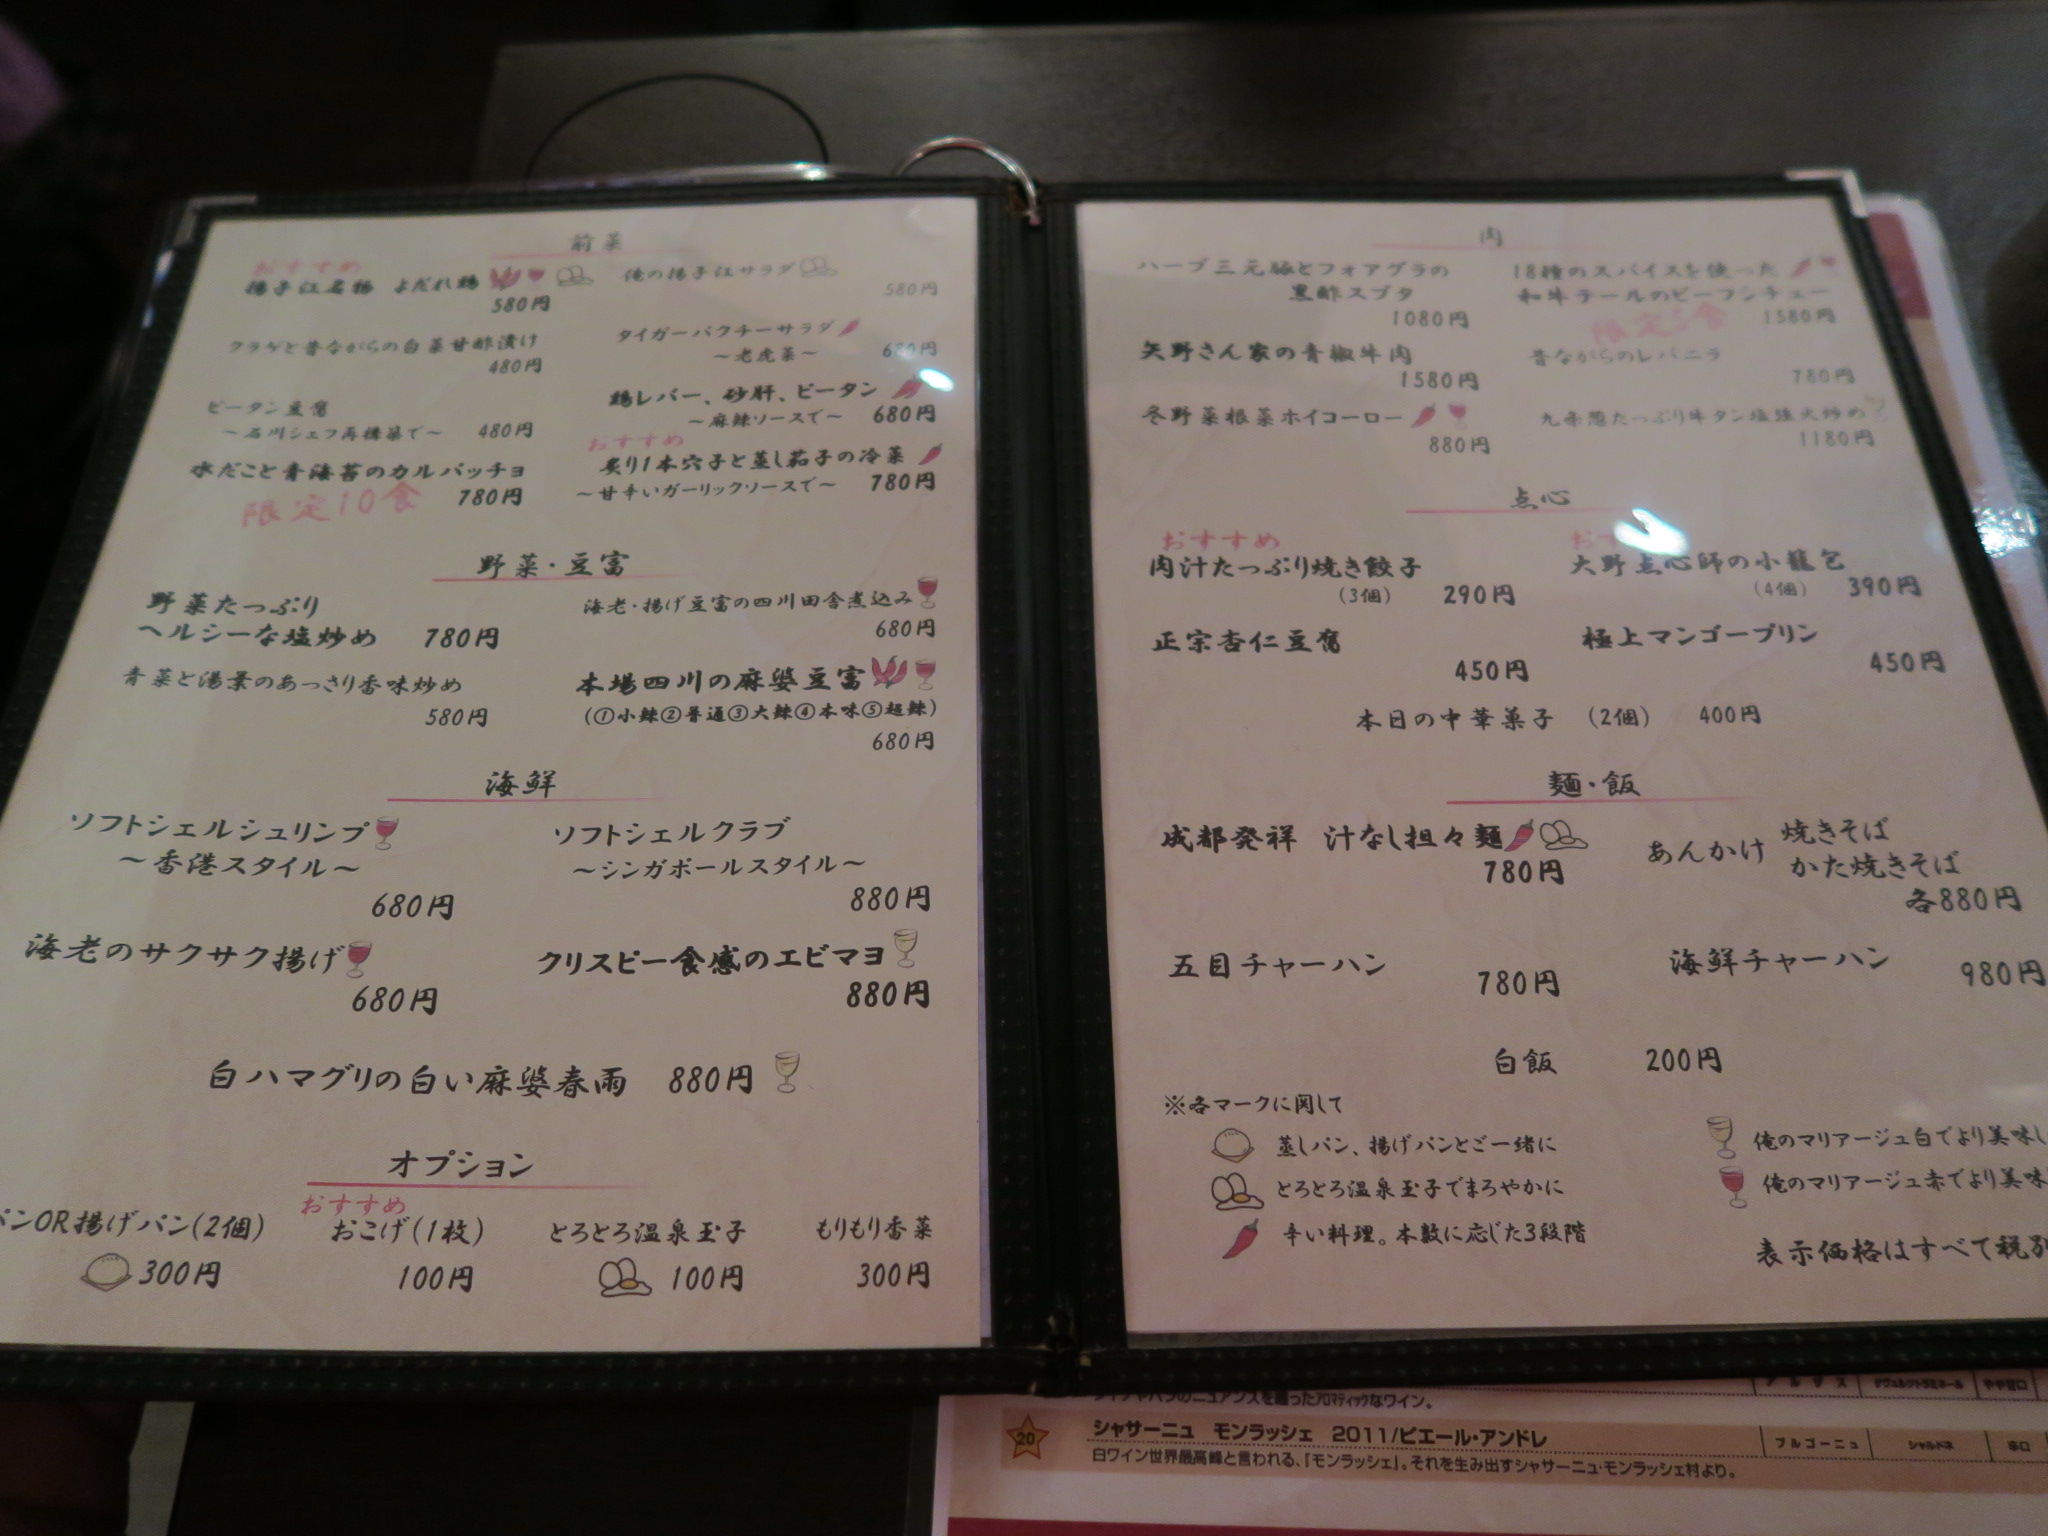 前菜
おすすめ
揚子江名物 よだれ鶏
580円
俺の揚子江サラダ
580円
クラゲと昔ながらの白菜甘酢漬け
480円
タイガーパクチーサラダ
～老虎菜～
680円
ピータン豆腐
～石川シェフ再構築で～ 480円
鶏レバー、砂肝、ピータン
～麻辣ソースで～ 680円
水だこと青海苔のカルパッチョ
限定10食 780円
おすすめ
炙り1本穴子と蒸し茄子の冷菜
～甘辛いガーリックソースで～ 780円
野菜・豆富
野菜たっぷり
ヘルシーな塩炒め 780円
海老・揚げ豆富の四川田舎煮込み
680円
青菜と湯葉のあっさり香味炒め
580円
本場四川の麻婆豆富
(①小辣②普通③大辣④本味⑤超辣)
680円
海鮮
ソフトシェルシュリンプ
～香港スタイル～
680円
ソフトシェルクラブ
～シンガポールスタイル～
880円
海老のサクサク揚げ
680円
クリスピー食感のエビマヨ
880円
白ハマグリの白い麻婆春雨 880円
オプション
パンOR揚げパン(2個)
300円
おすすめ
おこげ(1枚)
100円
とろとろ温泉玉子
100円
もりもり香菜
300円
肉
ハーブ三元豚とフォアグラの
黒酢スブタ
1080円
18種のスパイスを使った
和牛テールのビーフシチュー
限定5食 1580円
矢野さん家の青椒牛肉
1580円
昔ながらのレバニラ
780円
冬野菜根菜ホイコーロー
880円
九条葱たっぷり牛タン塩強火炒め
1180円
点心
おすすめ
肉汁たっぷり焼き餃子
(3個) 290円
おす
大野点心師の小籠包
(4個) 390円
正宗杏仁豆腐
450円
極上マンゴープリン
450円
本日の中華菓子 (2個) 400円
麺・飯
成都発祥 汁なし担々麺
780円
あんかけ 焼きそば
かた焼きそば
各880円
五目チャーハン
780円
海鮮チャーハン
980円
白飯 200円
※各マークに関して
蒸しパン、揚げパンとご一緒に
とろとろ温泉玉子でまろやかに
辛い料理。本数に応じた3段階
俺のマリアージュ白でより美味し
俺のマリアージュ赤でより美味
表示価格はすべて税別
20
シャサーニュ モンラッシェ 2011/ピエール・アンドレ
ブルゴーニュ
シャルドネ
辛口
白ワイン世界最高峰と言われる、「モンラッシェ」。それを生み出すシャサーニュ・モンラッシェ村より。